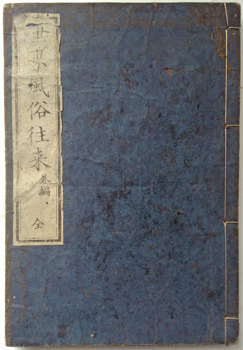 世界風俗往来
巻編
全